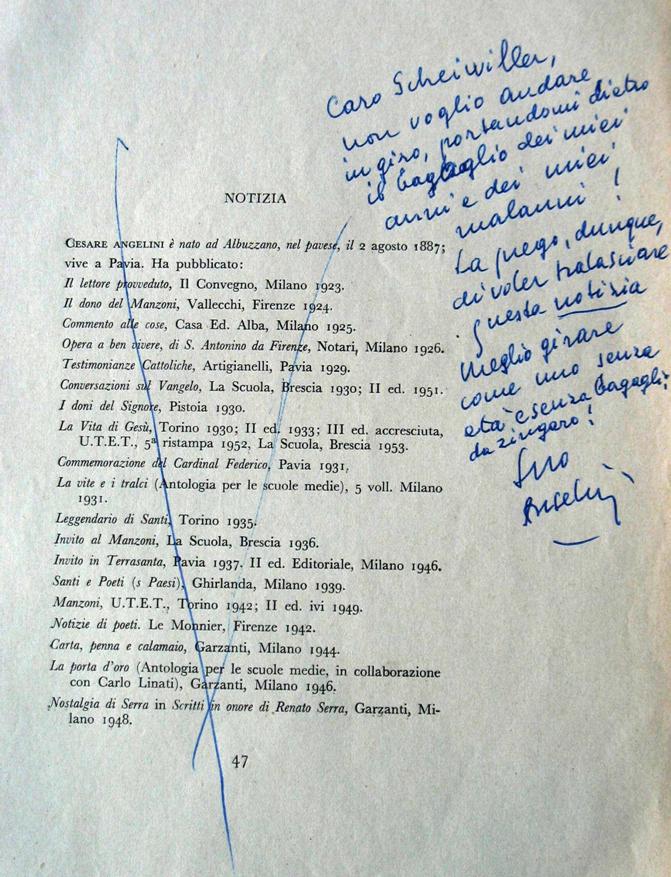 Caro Scheiwiller,
non voglio andare
in giro, portandomi dietro
il bagaglio dei miei
anni e dei miei
malanni!
La prego, dunque,
di voler tralasciare
questa notizia
Meglio girare
come uno senza
età e senza bagagli,
da zingaro!
Suo
Angelini
NOTIZIA
CESARE ANGELINI è nato ad Albuzzano, nel pavese, il 2 agosto 1887;
vive a Pavia. Ha pubblicato:
Il lettore provveduto, Il Convegno, Milano 1923.
Il dono del Manzoni, Vallecchi, Firenze 1924.
Commento alle cose, Casa Ed. Alba, Milano 1925.
Opera a ben vivere, di S. Antonino da Firenze, Notari, Milano 1926.
Testimonianze Cattoliche, Artigianelli, Pavia 1929.
Conversazioni sul Vangelo, La Scuola, Brescia 1930; II ed. 1951.
I doni del Signore, Pistoia 1930.
La Vita di Gesù, Torino 1930; II ed. 1933; III ed. accresciuta,
U.T.E.T., 5ª ristampa 1952, La Scuola, Brescia 1953.
Commemorazione del Cardinal Federico, Pavia 1931.
La vite e i tralci (Antologia per le scuole medie), 5 voll. Milano
1931.
Leggendario di Santi, Torino 1935.
Invito al Manzoni, La Scuola, Brescia 1936.
Invito in Terrasanta, Pavia 1937. II ed. Editoriale, Milano 1946.
Santi e Poeti (s Paesi), Ghirlanda, Milano 1939.
Manzoni, U.T.E.T., Torino 1942; II ed. ivi 1949.
Notizie di poeti. Le Monnier, Firenze 1942.
Carta, penna e calamaio, Garzanti, Milano 1944.
La porta d'oro (Antologia per le scuole medie, in collaborazione
con Carlo Linati), Garzanti, Milano 1946.
Nostalgia di Serra in Scritti in onore di Renato Serra, Garzanti, Mi-
lano 1948.
47